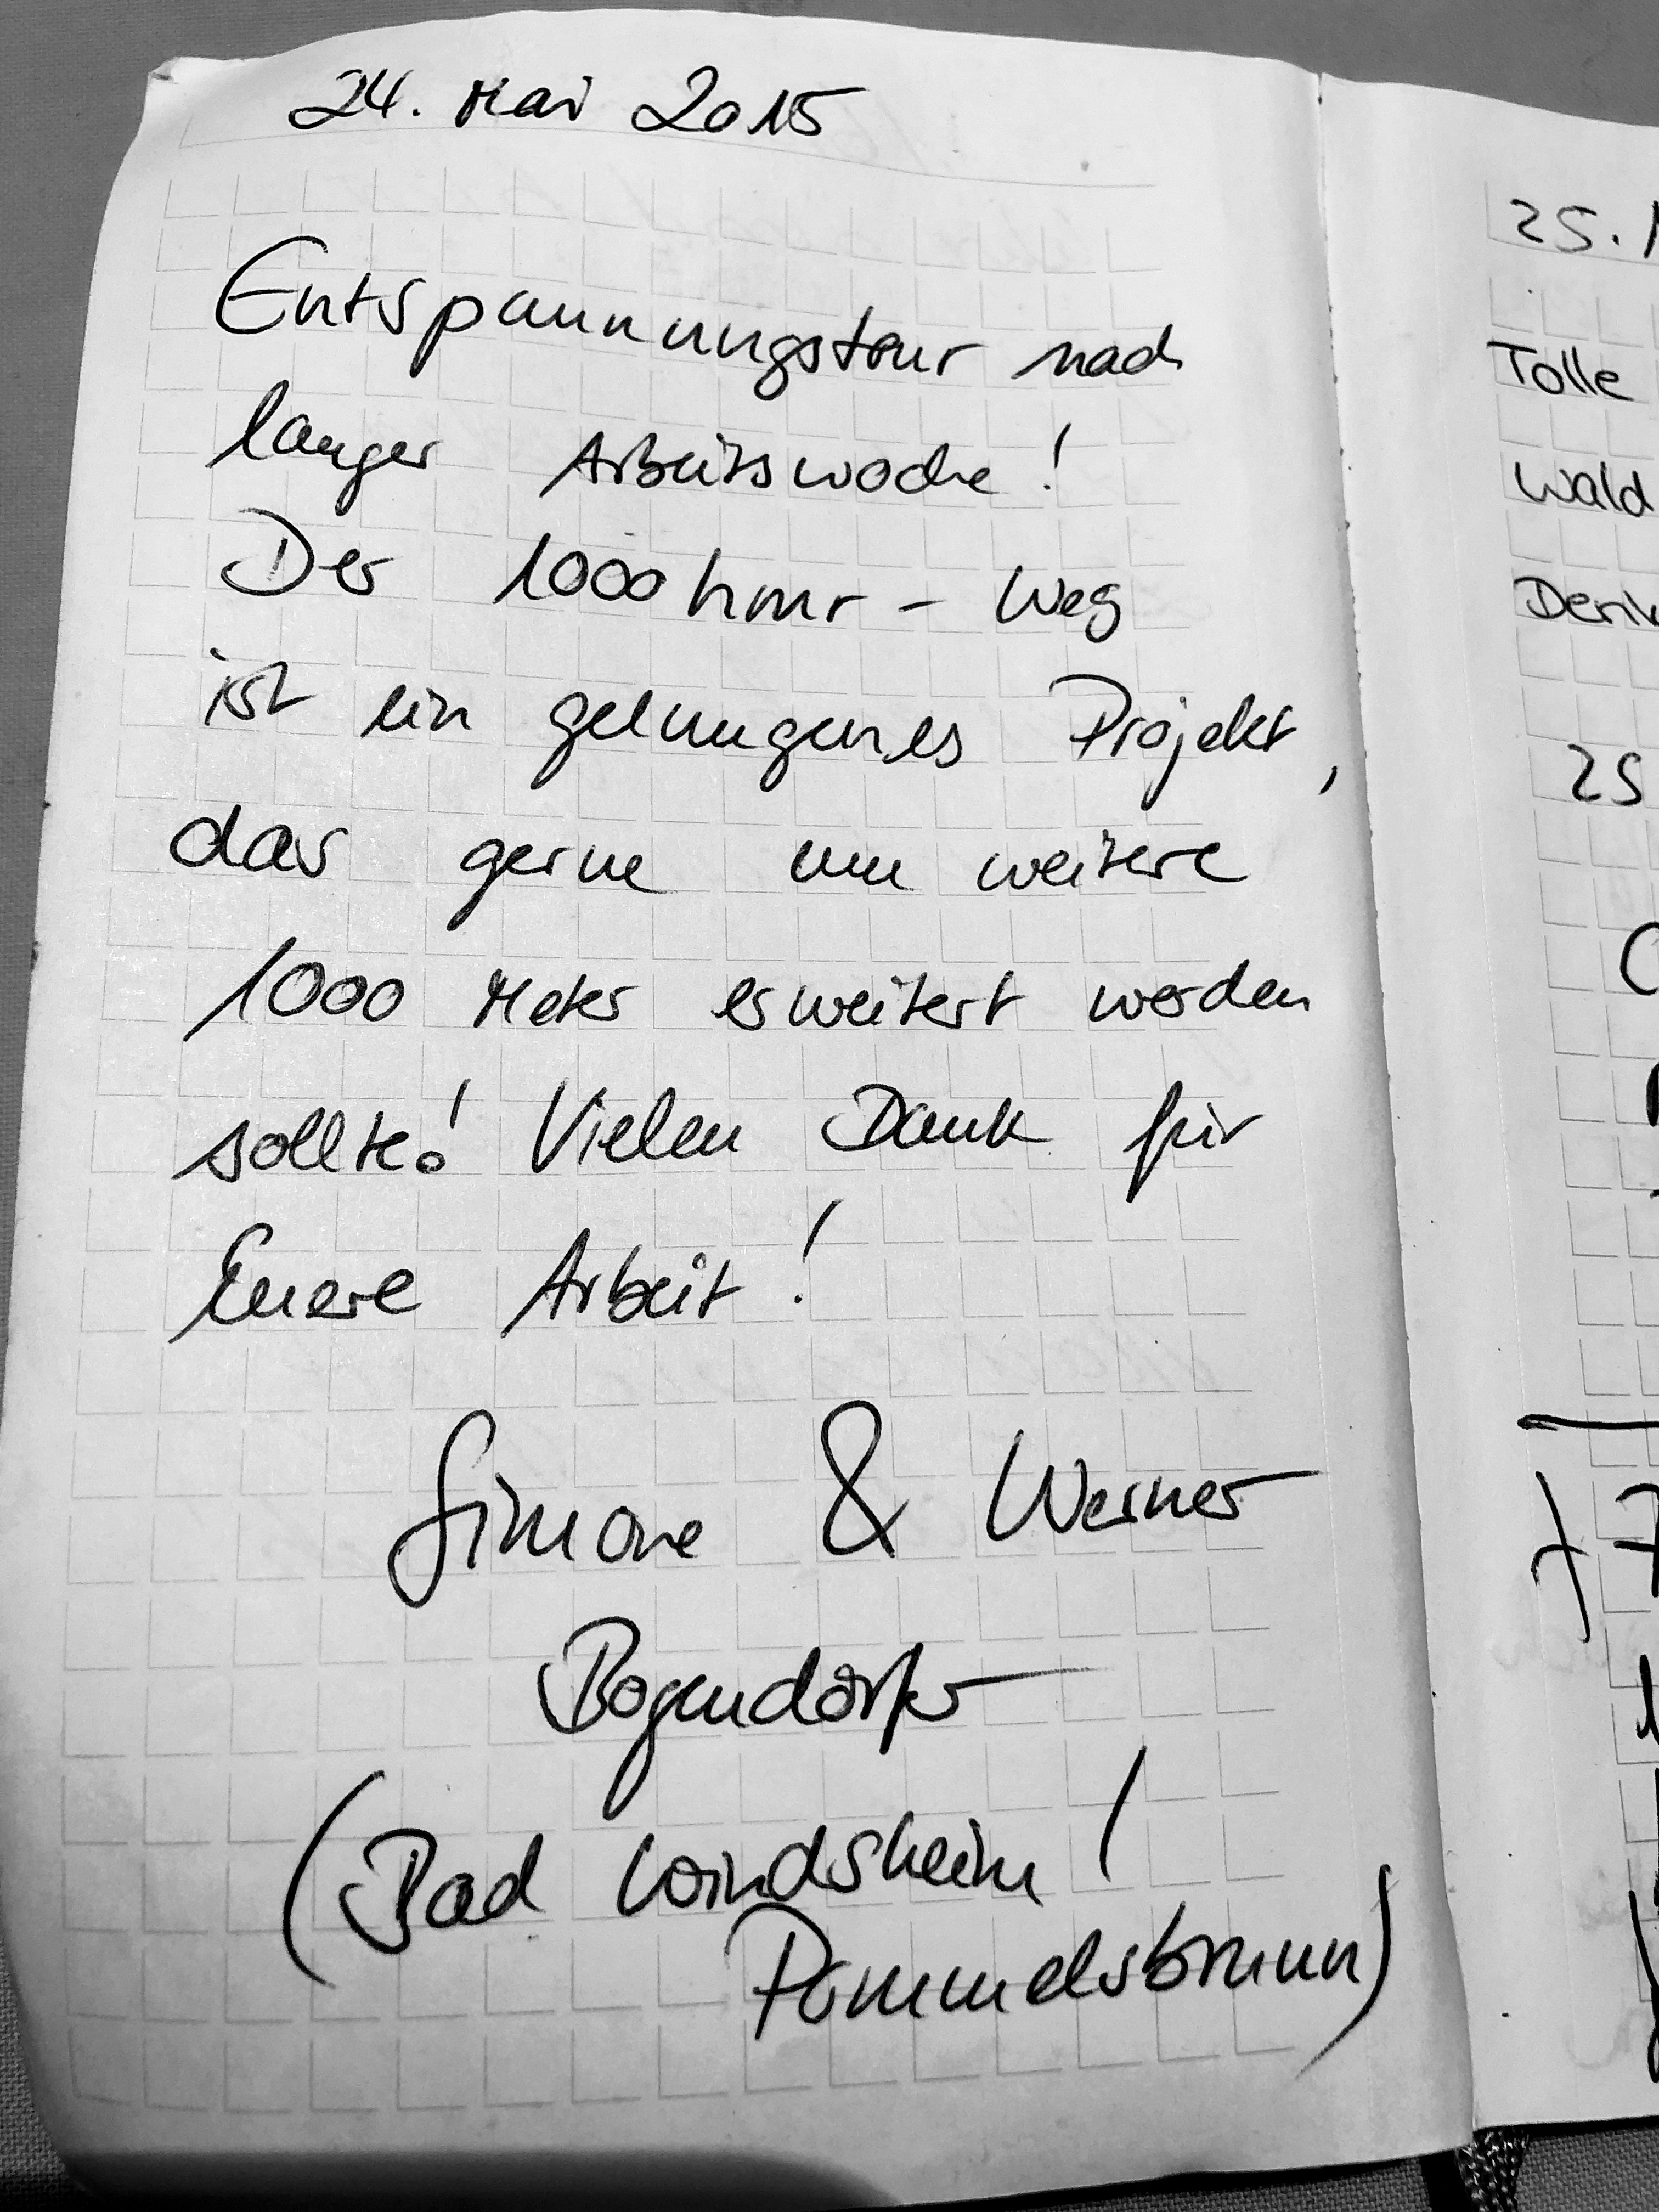 24. Mai 2015
Entspannungstour nach
langer Arbeitswoche!
Der 1000hour - Weg
ist ein gelungenes Projekt,
das gerne um weitere
1000 Meter erweitert werden
sollte! Vielen Dank für
Euere Arbeit!
Simone & Werner
Bogendörfer
(Bad Windsheim /
Pommelsbrunn)
25.
Tolle
Wald
25